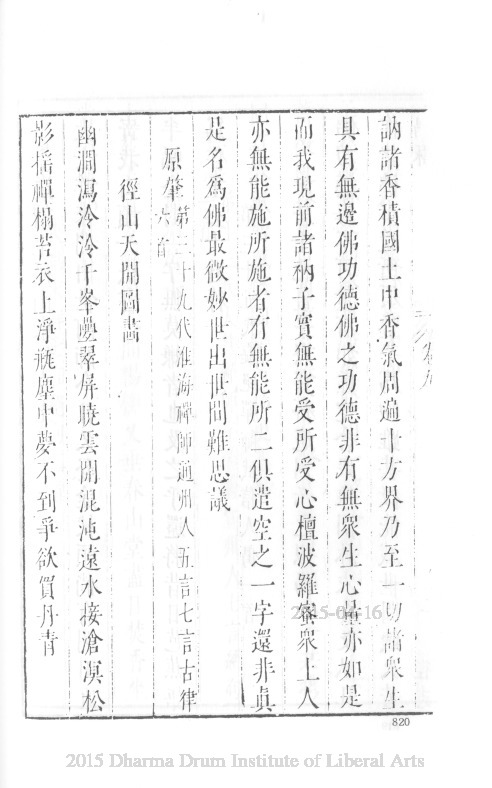 訥諸香積國土中香氣周遍十方界乃至一切諸衆生
具有無邊佛功德佛之功德非有無衆生心量亦如是
而我現前諸衲子實無能受所受心檀波羅蜜衆上人
亦無能施所施者有無能所二俱遣空之一字還非眞
是名爲佛最微妙世出世間難思議
原肇第三十九代淮海禪師通州人五言七言古律六首
徑山天開圖畵
幽澗瀉泠泠千峯疊翠屏曉雲開混沌遠水接滄溟松
影搖禪榻苔衣上淨甁塵中夢不到爭欲買丹青
2015-04-16
820
2015 Dharma Drum Institute of Liberal Arts